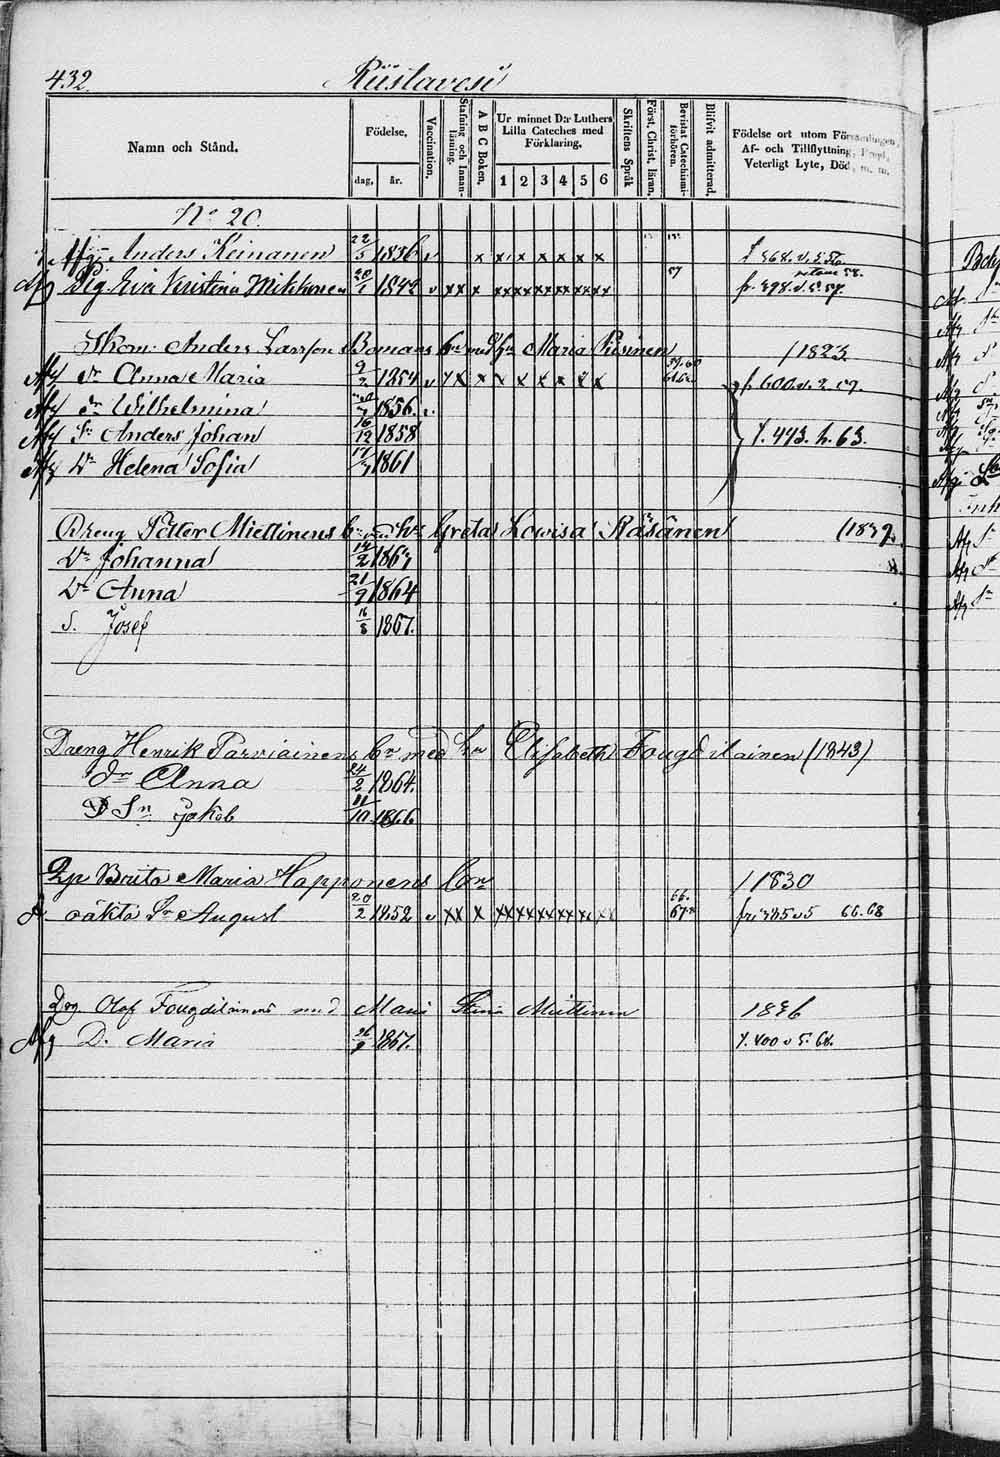 432. Riistavesi
Namn och Stånd.
Födelse,
dag, år.
Vaccination.
Stafning och Innanläsning.
A B C Boken.
Ur minnet D:r Luthers Lilla Cateches med Förklaring.
1 2 3 4 5 6
Skriftens Språk
Först. Christ. läran.
Bevistat Catechismiförhören.
Blifvit admitterad.
Födelse ort utom Församlingen,
Af- och Tillflyttning, Frejd,
Veterligt Lyte, Död, m. m.
No 20.
Anders Keinanen 22/5 1836 v x x x x x x x
Afg Pig Eva Kristina Mikkonen 20/1 1842 v xx x xx xx xx xx xx xx 57 fr. 398. v. 5. 57.
Skom. Anders Larsson Bomans bn med hu Maria Pusinen / 1823
Afg dr Anna Maria 9/2 1854 v x x x x x x x x x
Afg dr Wilhelmina 1856
Afg Sn Anders Johan 16/12 1858 f. 443. h. 63.
Afg Dr Helena Sofia 17/7 1861
Dreng Petter Miettinens bn med hu Greta Lovisa Räsänen (1837
Dr Johanna 14/2 1861
Dr Anna 21/9 1864
S. Josef 16/8 1867.
Dreng Henrik Parviainens bn med hu Elisabeth Fougdilainen (1843)
dr Anna 24/2 1864.
Sn Jakob 11/10 1866
Qp Brita Maria Happonens bn / 1830
oäkta Sn August 20/2 1852 v xx x xx xx xx xx xx xx 66. 67. 66.68
Drg Olof Fougdilainens med Maria Stina Miettinen 1836
Afg D. Maria 26/9 1867. f. 400 v 5. 68.